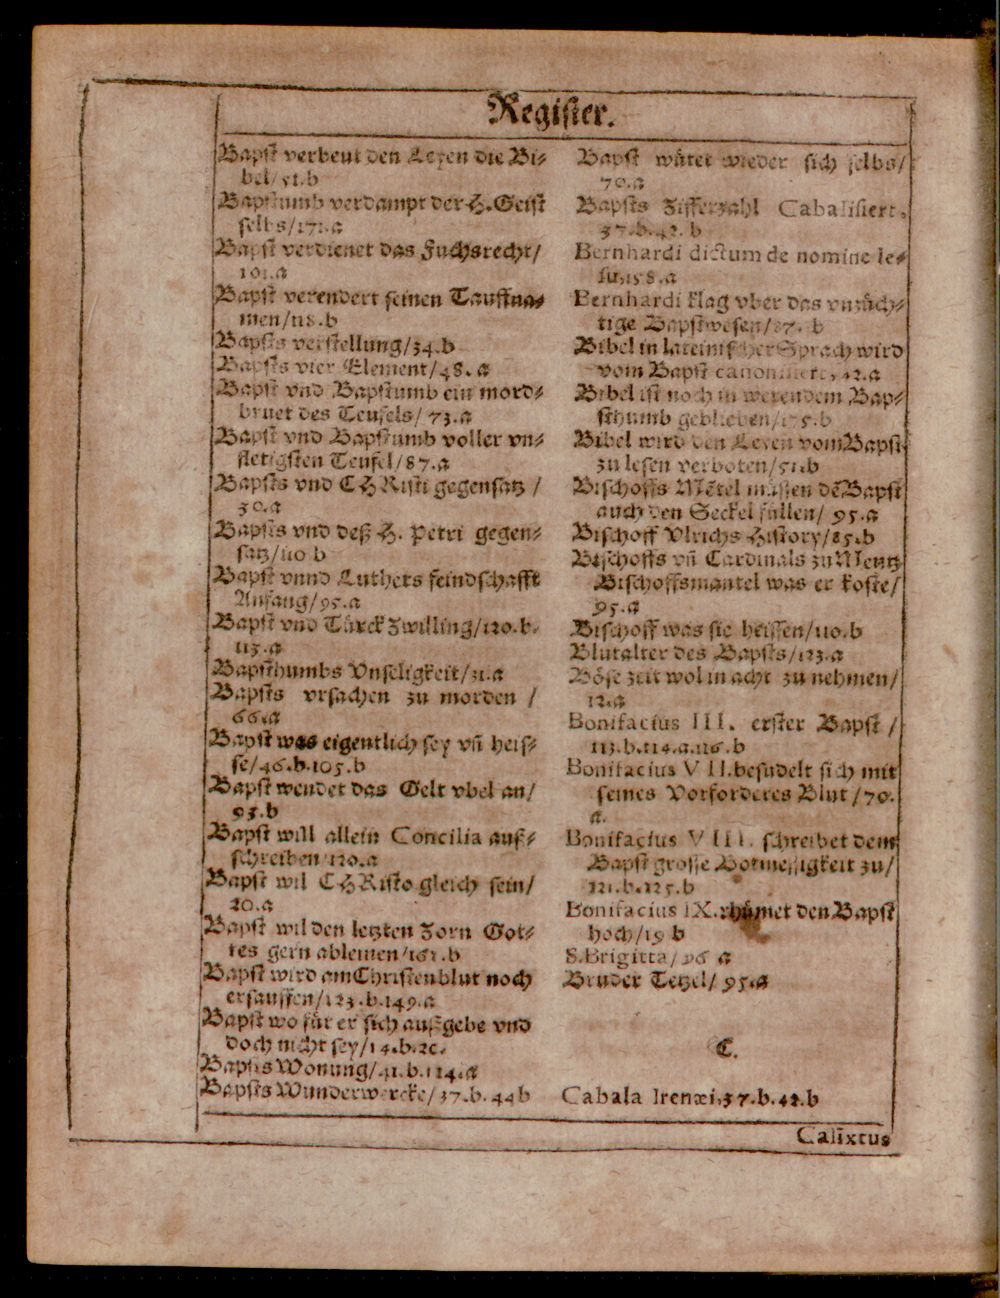 Register.
Bapst verbeut den Leyen die Bi⸗
bel/51.b
Bapstumb verdampt der H. Geist
selbs/171.a
Bapst verdienet das Fuchsrecht/
101.a
Bapst verendert seinen Tauffna⸗
men/118.b
Bapsts verstellung/34.b
Bapsts vier Element/48.a
Bapst vnd Bapstumb ein mord⸗
bruet des Teufels/73.a
Bapst vnd Bapstumb voller vn⸗
fletigsten Teufel/87.a
Bapsts vnd CHRisti gegensatz/
30.a
Bapsts vnd deß H. Petri gegen⸗
satz/110 b
Bapst vnnd Luthers feindschafft
Anfang/95.a
Bapst vnd Türck Zwilling/120.b.
113.a
Bapsthumbs Vnseligkeit/31.a
Bapsts vrsachen zu morden /
66.a
Bapst was eigentlich sey vñ heis⸗
se/46.b.105.b
Bapst wendet das Gelt vbel an/
93.b
Bapst will allein Concilia auß⸗
schreiben/120.a
Bapst wil CHRisto gleich sein/
20.a
Bapst wil den letzten Zorn Got⸗
tes gern ableinen/161.b
Bapst wird am Christenblut noch
ersauffen/123.b.149.a
Bapst wo für er sich außgebe vnd
doch nicht sey/14.b.2c.
Bapsts Wonung/41.b.124.a
Bapsts Wunderwercke/37.b.44 b
Bapst wütet wieder sich selbs/
70.a
Bapsts Zifferzahl Cabalisiert,
37.b.42.b
Bernhardi dictum de nomine Ie⸗
su/158.a
Bernhardi klag vber das vnzüch⸗
tige Bapstwesen/87.b
Bibel in lateinischer Sprach wird
vom Bapst canonisiert,42.a
Bibel ist noch in werendem Bap⸗
sthumb geblieben/175.b
Bibel wird den Leyen vom Bapst
zu lesen verboten/51.b
Bischoffs Mẽtel müssen dẽ Bapst
auch den Seckel füllen/95.a
Bischoff Vlrichs History/85.b
Bischoffs vñ Cardinals zu Mentz
Bischoffsmantel was er koste/
95.a
Bischoff was sie heissen/110.b
Blutalter des Bapsts/123.a
Böse zeit wol in acht zu nehmen/
12.a
Bonifacius III. erster Bapst /
113.b.114.a.116.b
Bonifacius VII. besudelt sich mit
seines Vorforderes Blut/70.
a.
Bonifacius VIII. schreibet dem
Bapst grosse Botmessigkeit zu/
121.b.125.b
Bonifacius IX. rhümet den Bapst
hoch/19 b
S. Brigitta/96 a
Bruder Tetzel/95.a
C.
Cabala Irenæi,37.b.42.b
Calixtus